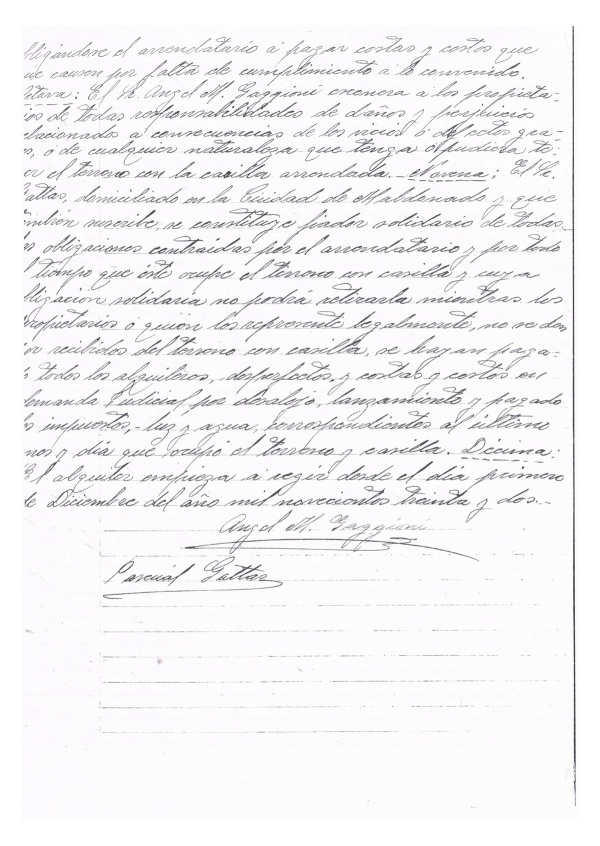 bligándose el arrendatario á pagar costas y costos que
ue causen por falta de cumplimiento á lo convenido.
ctava: El Sr. Angel M. Gaggioni exonera a los propieta-
ios de todas responsabilidades de daños y perjuicios
elacionados a consecuencias de los vicios ó defectos gra-
s, ó de cualquier naturaleza que tenga ó pudiera te-
er el terreno con la casilla arrendada. - Novena: El Sr.
attas, domiciliado en la Ciudad de Maldonado y que
mbién suscribe, se constituye fiador solidario de todas
s obligaciones contraídas por el arrendatario y por todo
l tiempo que éste ocupe el terreno con casilla y cuya
bligación solidaria no podrá retirarla mientras los
ropietarios ó quién los represente legalmente, no se den
or recibidos del terreno con casilla, se hayan paga-
todos los alquileres, desperfectos y costas y costos en
emanda Judicial por desalojo, lanzamiento y pagado
s impuestos - luz y agua, correspondientes al último
mes y día que ocupó el terreno y casilla. Décima:
El alquiler empieza á regir desde el día primero
e Diciembre del año mil novecientos treinta y dos. -
Angel M. Gaggioni
Pascual Gattas